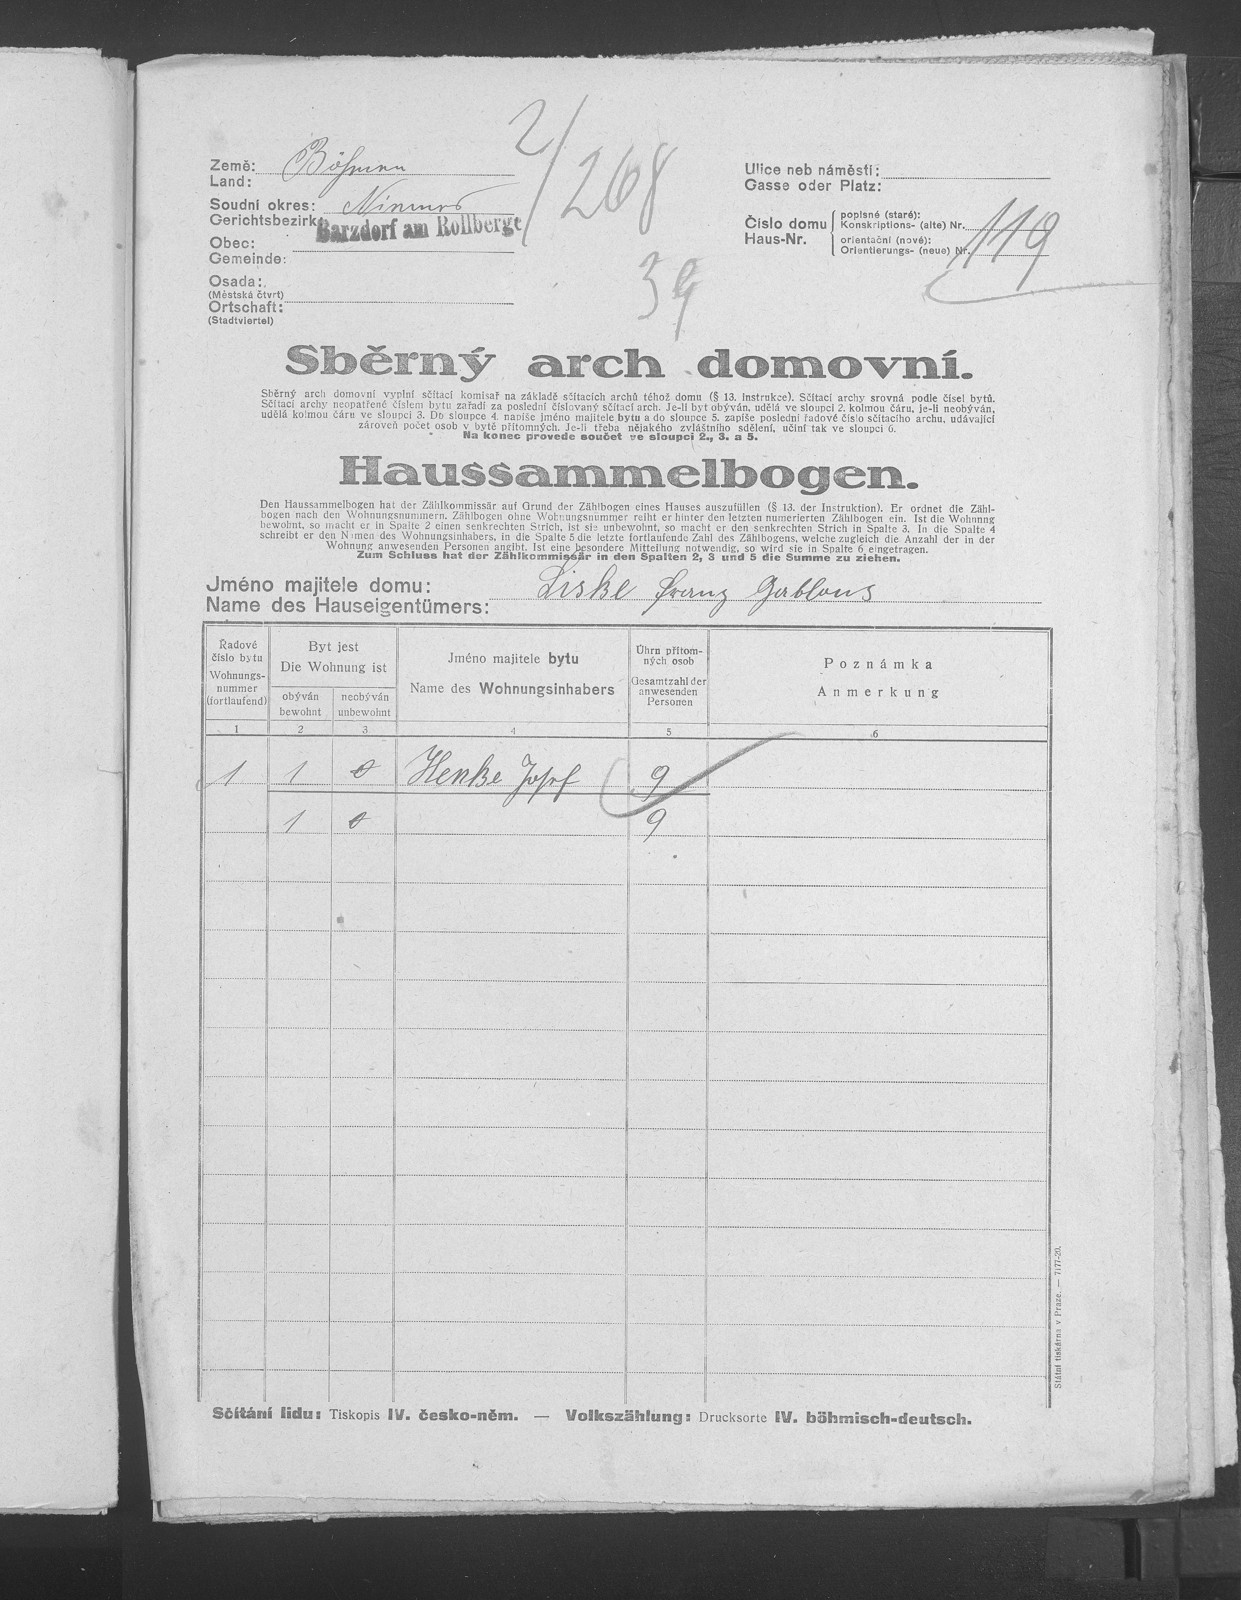 2/268
39
Země: Böhmen
Land:
Soudní okres: Niemes
Gerichtsbezirk:
Barzdorf am Rollberge
Obec:
Gemeinde:
Osada:
(Městská čtvrť)
Ortschaft:
(Stadtviertel)
Ulice neb náměstí:
Gasse oder Platz:
Číslo domu
Haus-Nr.
popisné (staré):
Konskriptions- (alte) Nr.
orientační (nové):
Orientierungs- (neue) Nr.
119
Sběrný arch domovní.
Sběrný arch domovní vyplní sčítací komisař na základě sčítacích archů téhož domu (§ 13. instrukce). Sčítací archy srovná podle čísel bytů.
Sčítací archy neopatřené číslem bytu zařadí za poslední číslovaný sčítací arch. Je-li byt obýván, udělá ve sloupci 2. kolmou čáru, je-li neobýván,
udělá kolmou čáru ve sloupci 3. Do sloupce 4. napíše jméno majitele bytu a do slouce 5. zapíše poslední řadové číslo sčítacího archu, udávající
zároveň počet osob v bytě přítomných. Je-li třeba nějakého zvláštního sdělení, učiní tak ve sloupci 6.
Na konec provede součet ve sloupci 2., 3. a 5.
Haussammelbogen.
Den Haussammelbogen hat der Zählkommissär auf Grund der Zählbogen eines Hauses auszufüllen (§ 13. der Instruktion). Er ordnet die Zähl-
bogen nach den Wohnungsnummern. Zählbogen ohne Wohnungsnummer reiht er hinter den letzten numerierten Zählbogen ein. Ist die Wohnung
bewohnt, so macht er in Spalte 2 einen senkrechten Strich, ist sie unbewohnt, so macht er den senkrechten Strich in Spalte 3. In die Spalte 4
schreibt er den Namen des Wohnungsinhabers, in die Spalte 5 die letzte fortlaufende Zahl des Zählbogens, welche zugleich die Anzahl der in der
Wohnung anwesenden Personen angibt. Ist eine besondere Mitteilung notwendig, so wird sie in Spalte 6 eingetragen.
Zum Schluss hat der Zählkommissär in den Spalten 2, 3 und 5 die Summe zu ziehen.
Jméno majitele domu: Liske Franz Gablons
Name des Hauseigentümers:
Řadové
číslo bytu
Wohnungs-
nummer
(fortlaufend)
Byt jest
Die Wohnung ist
obýván
bewohnt
neobýván
unbewohnt
Jméno majitele bytu
Name des Wohnungsinhabers
Úhrn přítom-
ných osob
Gesamtzahl der
anwesenden
Personen
Poznámka
Anmerkung
1 2 3 4 5 6
1 1 0 Henke Josef 9
1 0 9
Státní tiskárna v Praze. — 7177-20.
Sčítání lidu: Tiskopis IV. česko-něm. — Volkszählung: Drucksorte IV. böhmisch-deutsch.